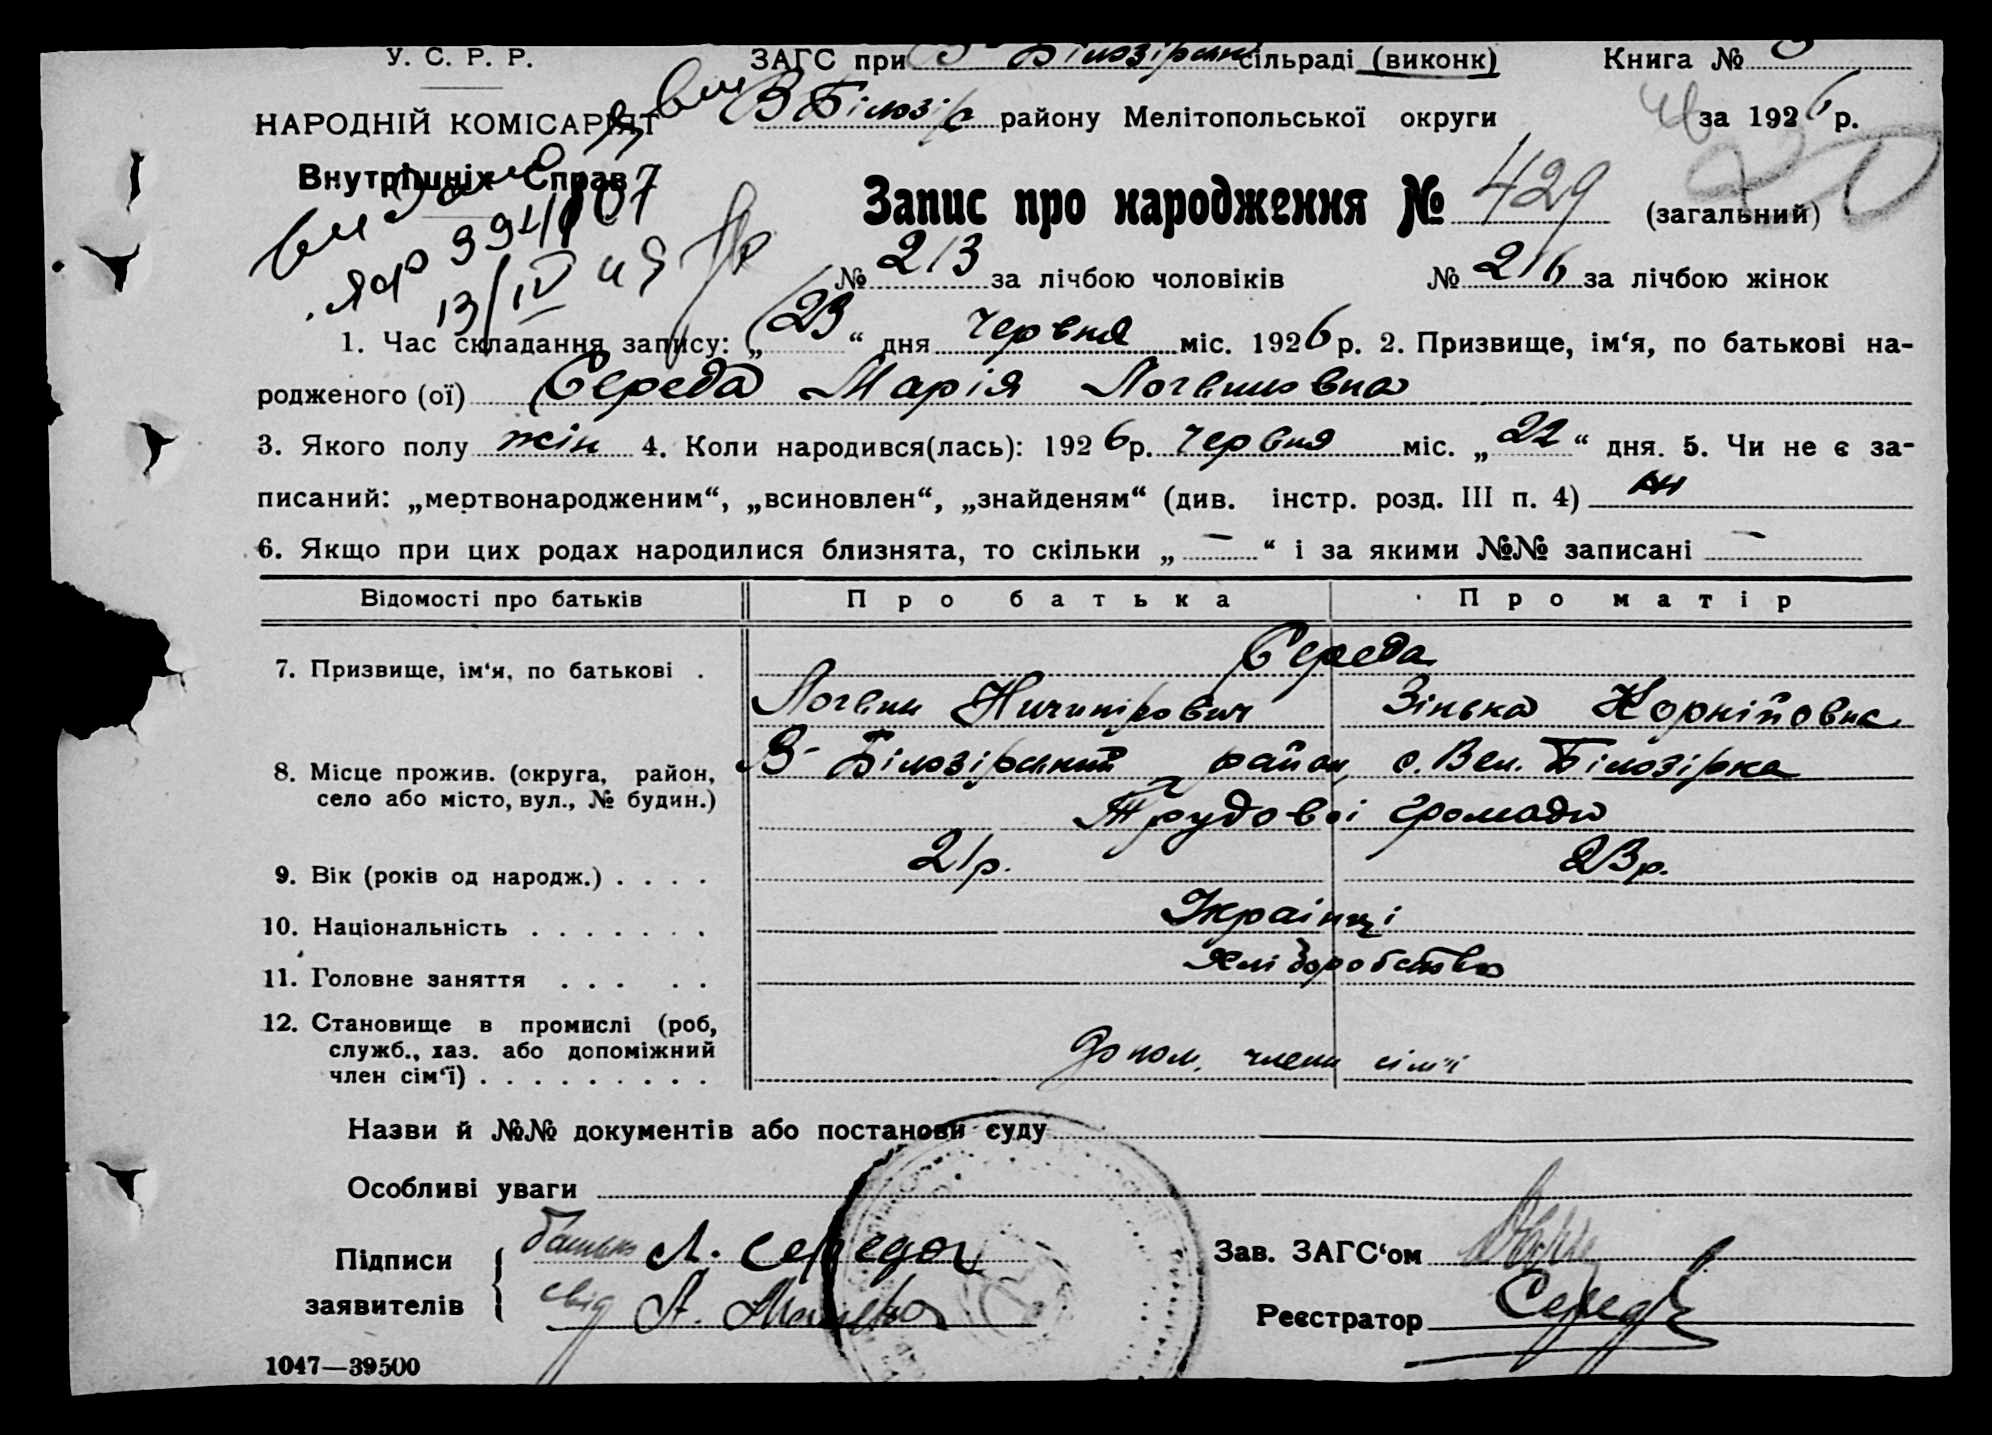 У. С. Р. Р.
ЗАГС при В-Білозірські сільраді (виконк)
Книга №
НАРОДНІЙ КОМІСАРІЯТ
В Білозір району Мелітопольської округи
за 1926 р.
Внутрішніх Справ
Запис про народження № 429 (загальний)
ЯФ 394107
13/IV 49
№ 213 за лічбою чоловіків № 216 за лічбою жінок
1. Час складання запису: „23“ дня червня міс. 1926 р. 2. Призвище, ім‘я, по батькові на-
родженого (ої) Середа Марія Логвиновна
3. Якого полу жін 4. Коли народився(лась): 1926 р. червня міс. „22“ дня. 5. Чи не є за-
писаний: „мертвонародженим“, „всиновлен“, „знайденям“ (див. інстр. розд. III п. 4) ні
6. Якщо при цих родах народилися близнята, то скільки „ — “ і за якими №№ записані —
Відомості про батьків Про батька Про матір
Середа
7. Призвище, ім‘я, по батькові .
Логвин Ничипірович Зінька Корніївна
В-Білозірський район с. Вел. Білозірка
8. Місце прожив. (округа, район,
село або місто, вул., № будин.)
Трудової громади
9. Вік (років од народж.) . . . . 21 р. 23 р.
10. Національність . . . . . . . Українці
11. Головне заняття . . . . . Хліборобство
12. Становище в промислі (роб,
служб., хаз. або допоміжний
член сім‘ї) . . . . . . . . . допом. члени сім'ї
Назви й №№ документів або постанови суду
Особливі уваги
Підписи батько Л. Середа
Зав. ЗАГС‘ом
заявителів свід А.
Реєстратор Серед
1047—39500